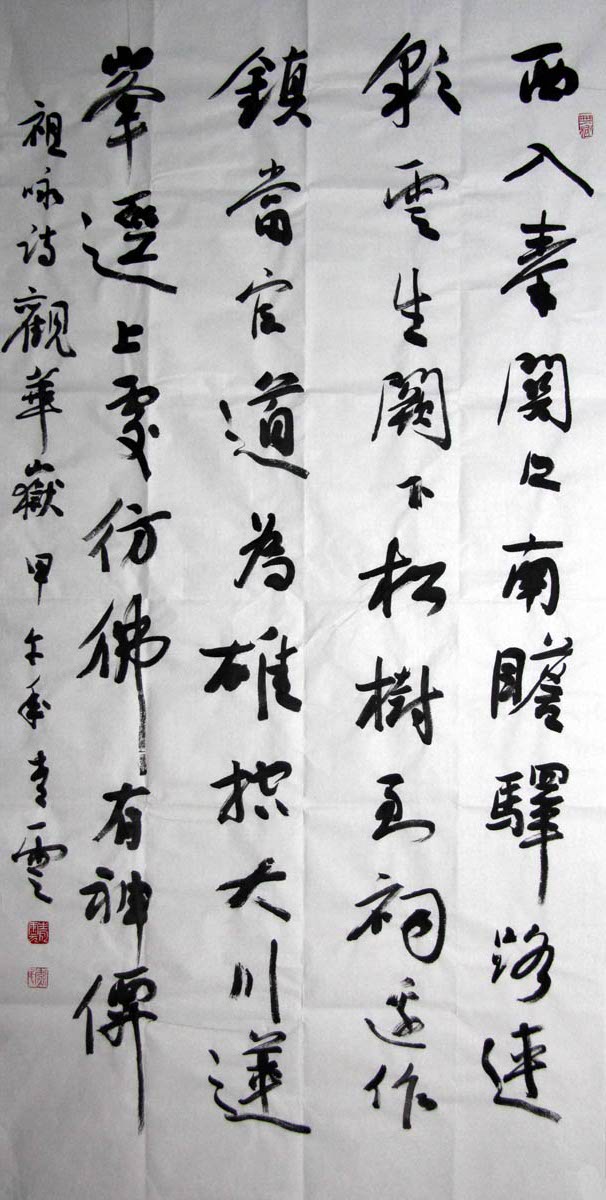 西入秦關口南瞻驛路連
彩雲生闕下松樹到祠邊作
鎮當官道為雄控大川蓮
峯逕上處彷佛有神僊
祖咏詩觀華嶽甲午年青雲